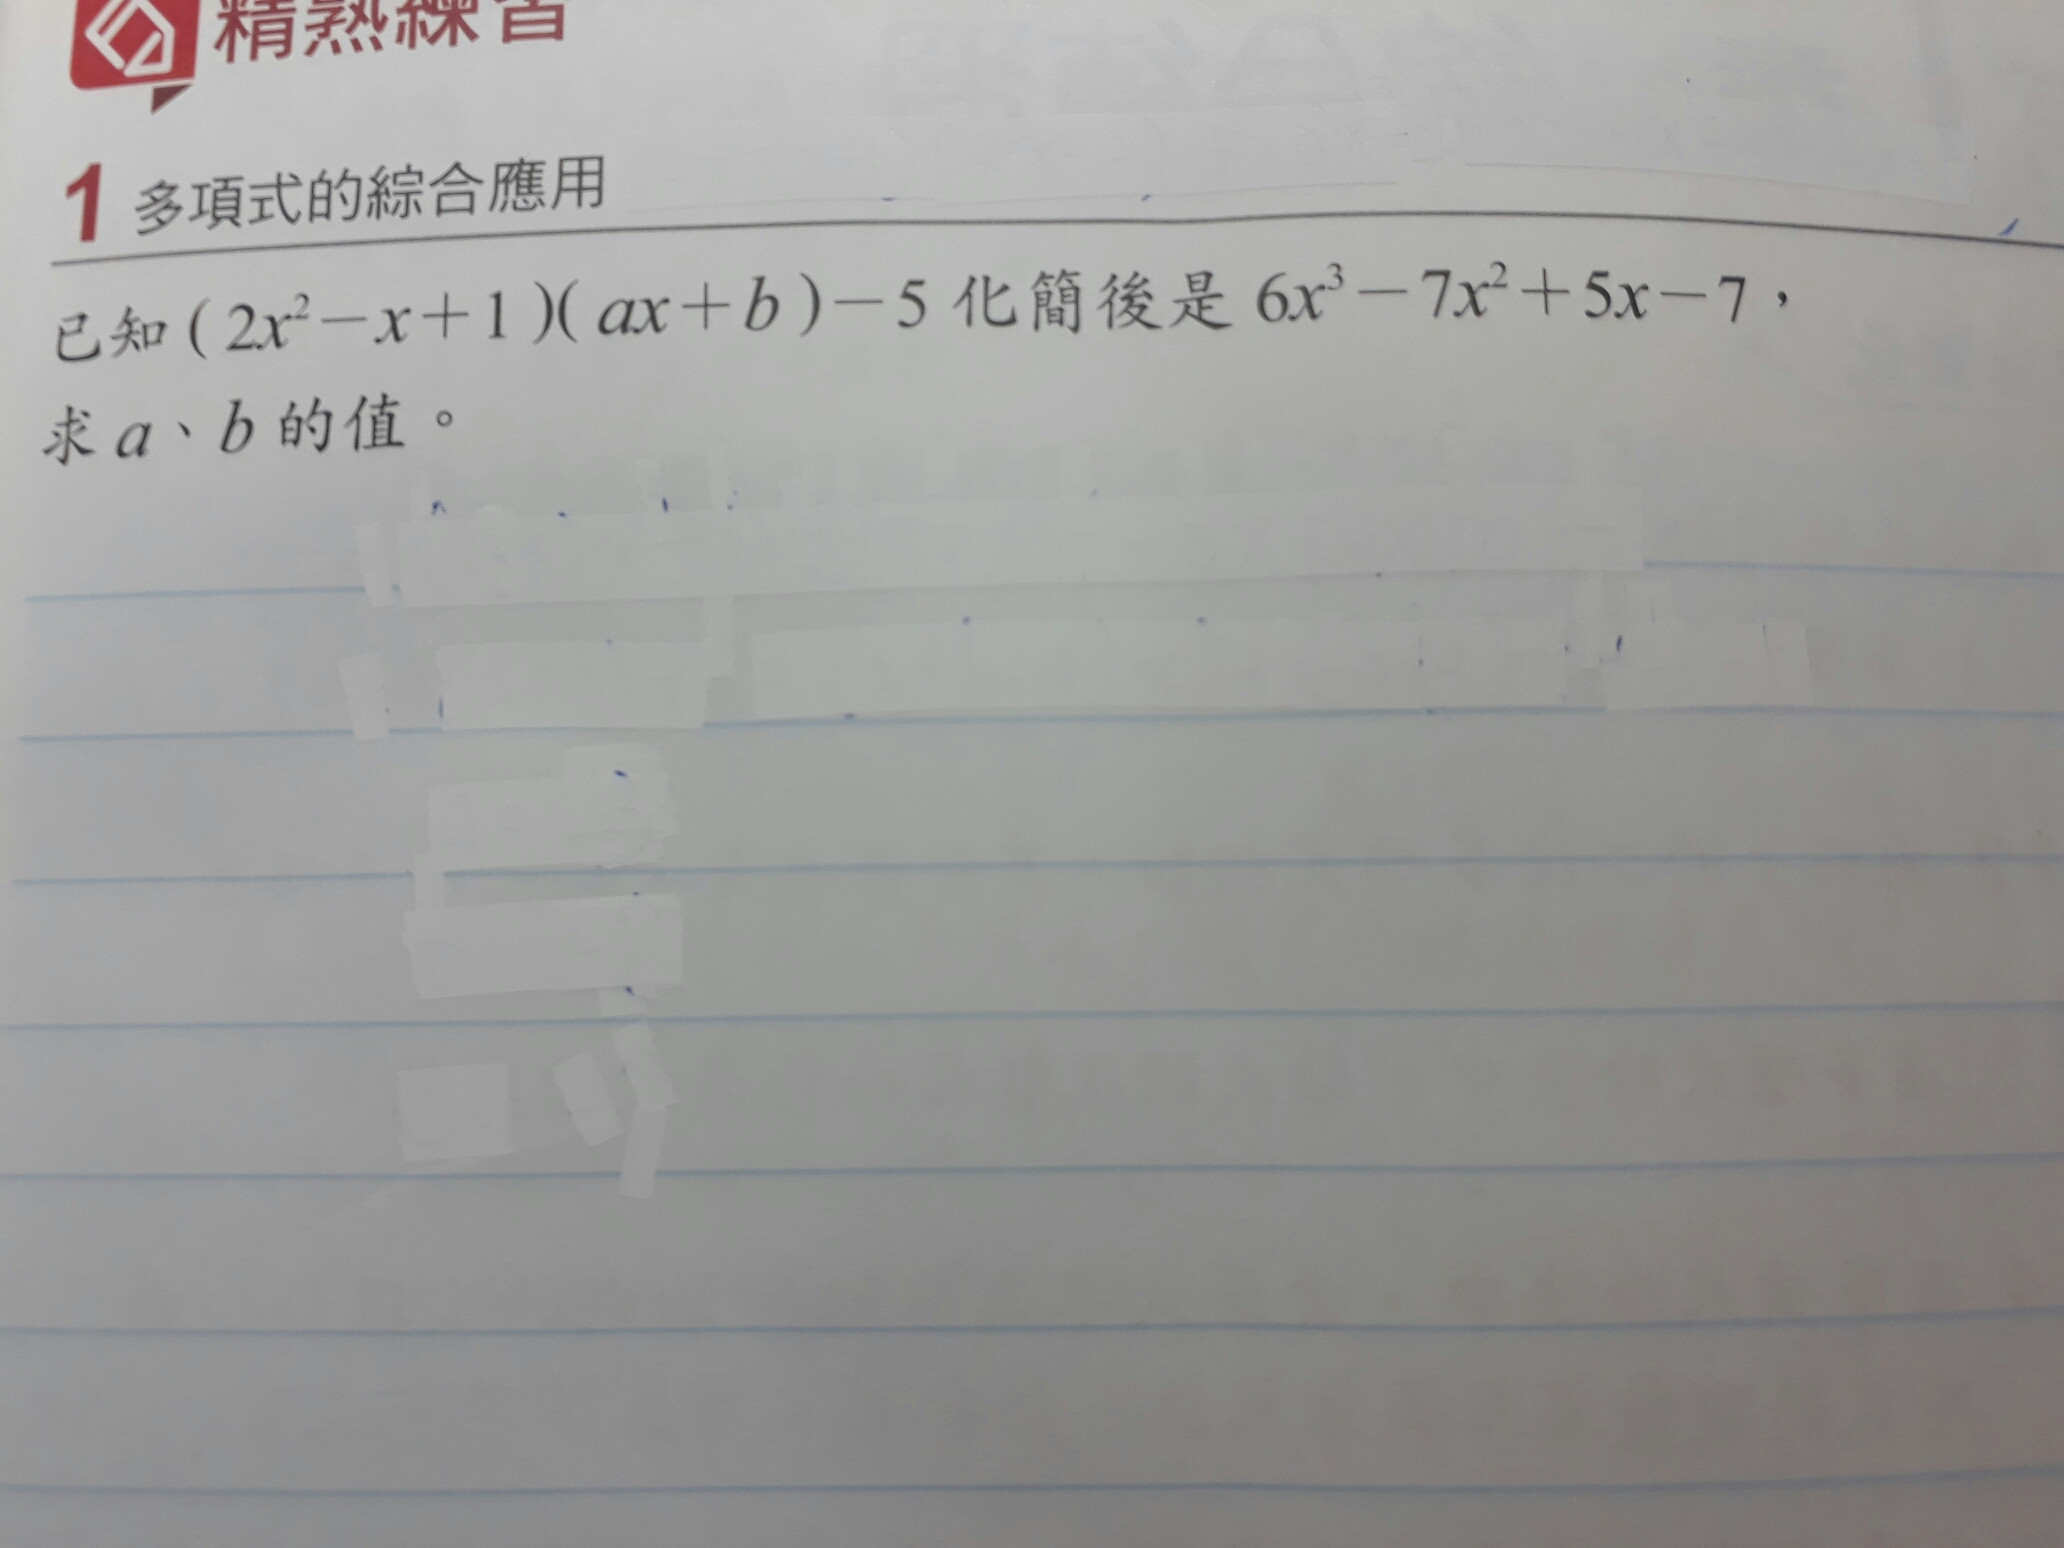 精熟練習
1 多項式的綜合應用
已知(2x²－x＋1)(ax＋b)－5 化簡後是 6x³－7x²＋5x－7，
求 a、b 的值。